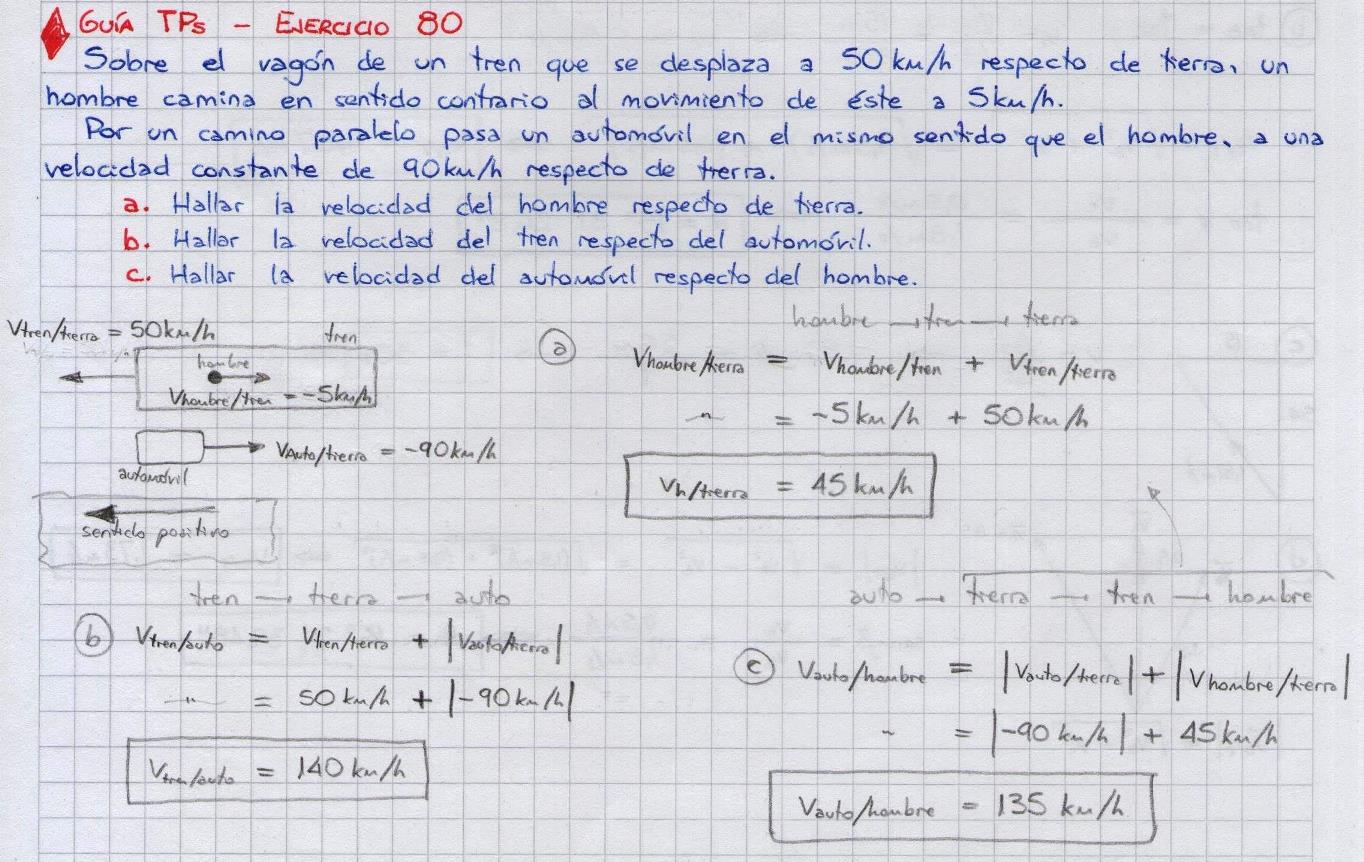 GUÍA TPs - EJERCICIO 80
Sobre el vagón de un tren que se desplaza a 50 km/h respecto de tierra, un
hombre camina en sentido contrario al movimiento de éste a 5km/h.
Por un camino paralelo pasa un automóvil en el mismo sentido que el hombre, a una
velocidad constante de 90km/h respecto de tierra.
a. Hallar la velocidad del hombre respecto de tierra.
b. Hallar la velocidad del tren respecto del automóvil.
c. Hallar la velocidad del automóvil respecto del hombre.
Vtren/tierra = 50km/h
tren
hombre
Vhombre/tren = -5km/h
VAuto/tierra = -90km/h
automóvil
sentido positivo
hombre → tren → tierra
a Vhombre/tierra = Vhombre/tren + Vtren/tierra
" = -5km/h + 50km/h
Vh/tierra = 45km/h
tren → tierra → auto
b Vtren/auto = Vtren/tierra + |Vauto/tierra|
" = 50km/h + |-90km/h|
Vtren/auto = 140km/h
auto → tierra → tren → hombre
c Vauto/hombre = |Vauto/tierra| + |Vhombre/tierra|
" = |-90 km/h| + 45km/h
Vauto/hombre = 135 km/h